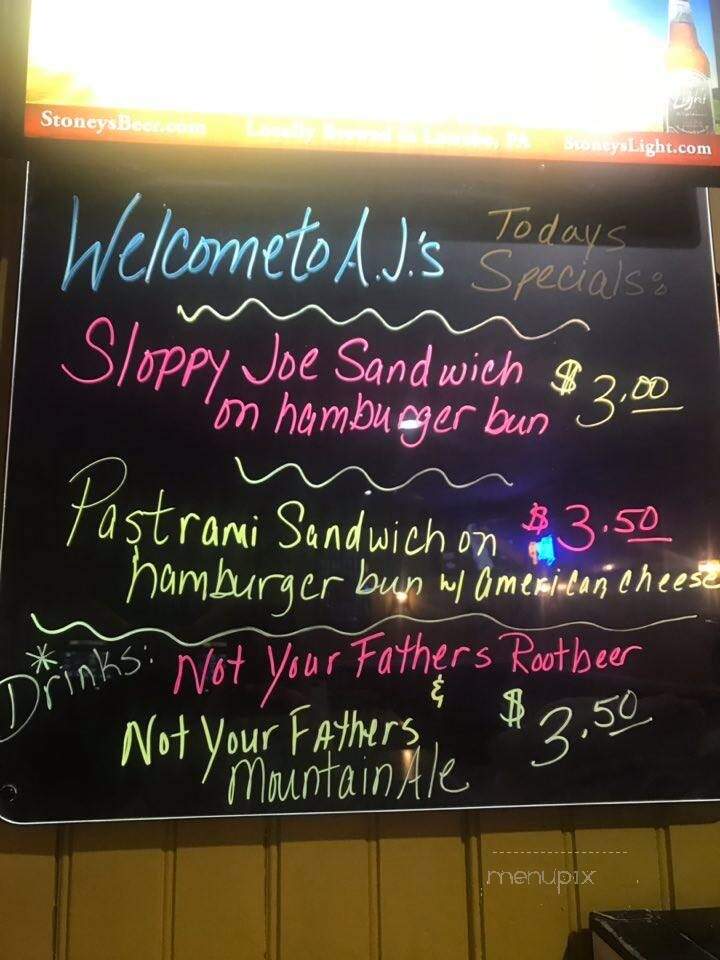 StoneysBeer.com Locally Brewed in Latrobe, PA StoneysLight.com
Light
Welcome to A.J.'s
Todays
Specials:
Sloppy Joe Sandwich $3.00
on hamburger bun
Pastrami Sandwich on $3.50
hamburger bun w/ american cheese
*Drinks: Not Your Fathers Rootbeer
&
Not Your Fathers $3.50
Mountain Ale
menupix